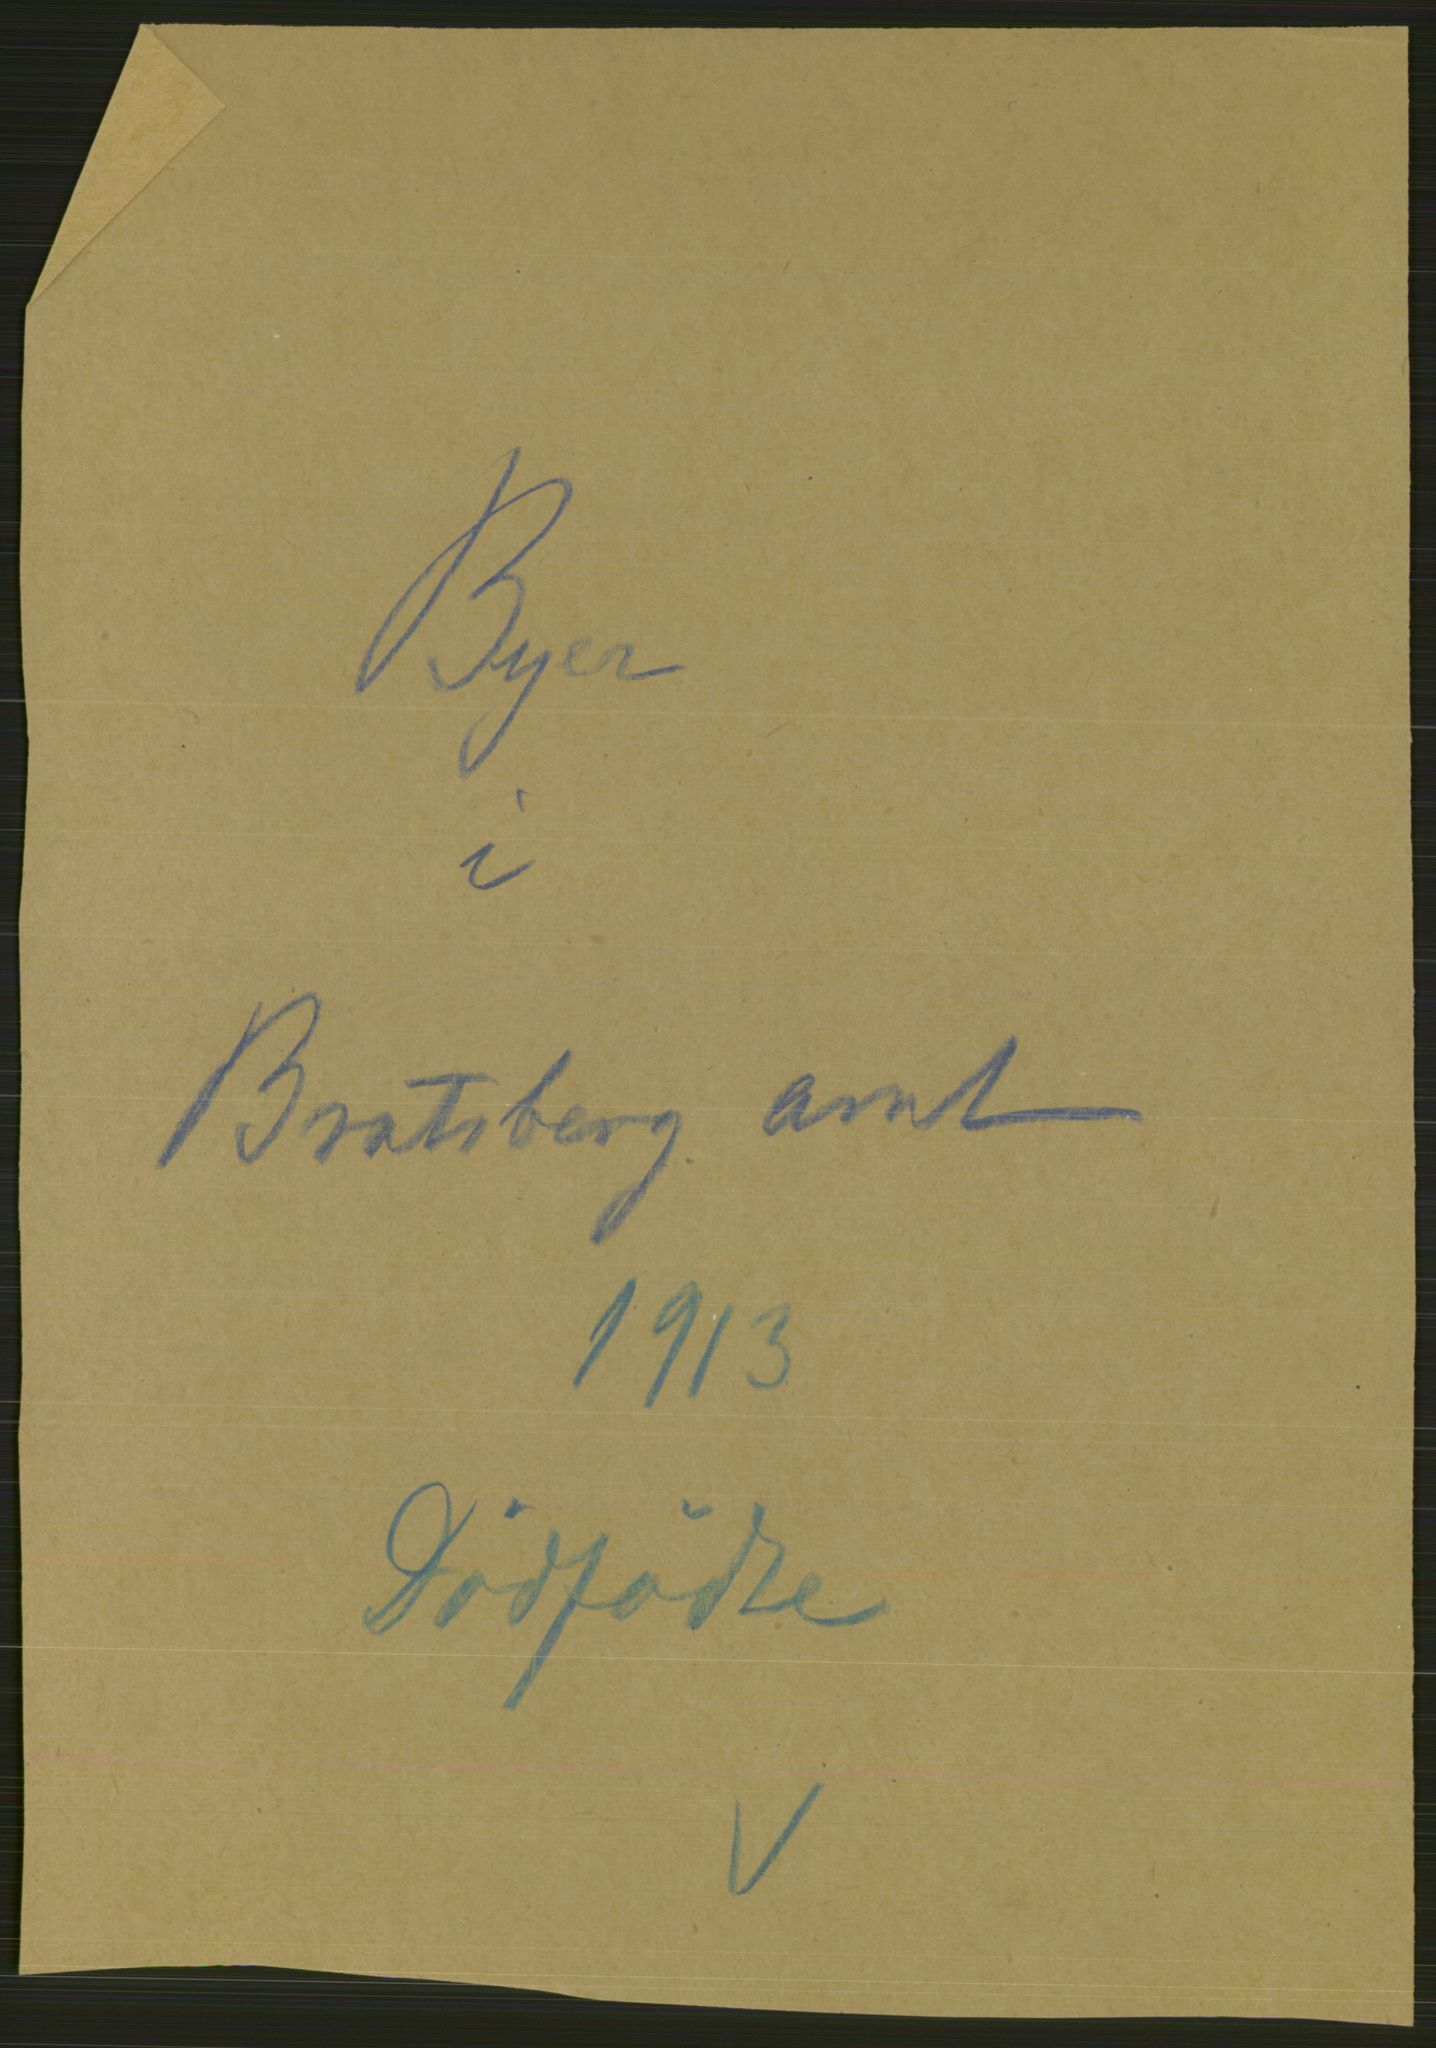 Byer
i
Bratsberg amt
1913
Dödfödte
V